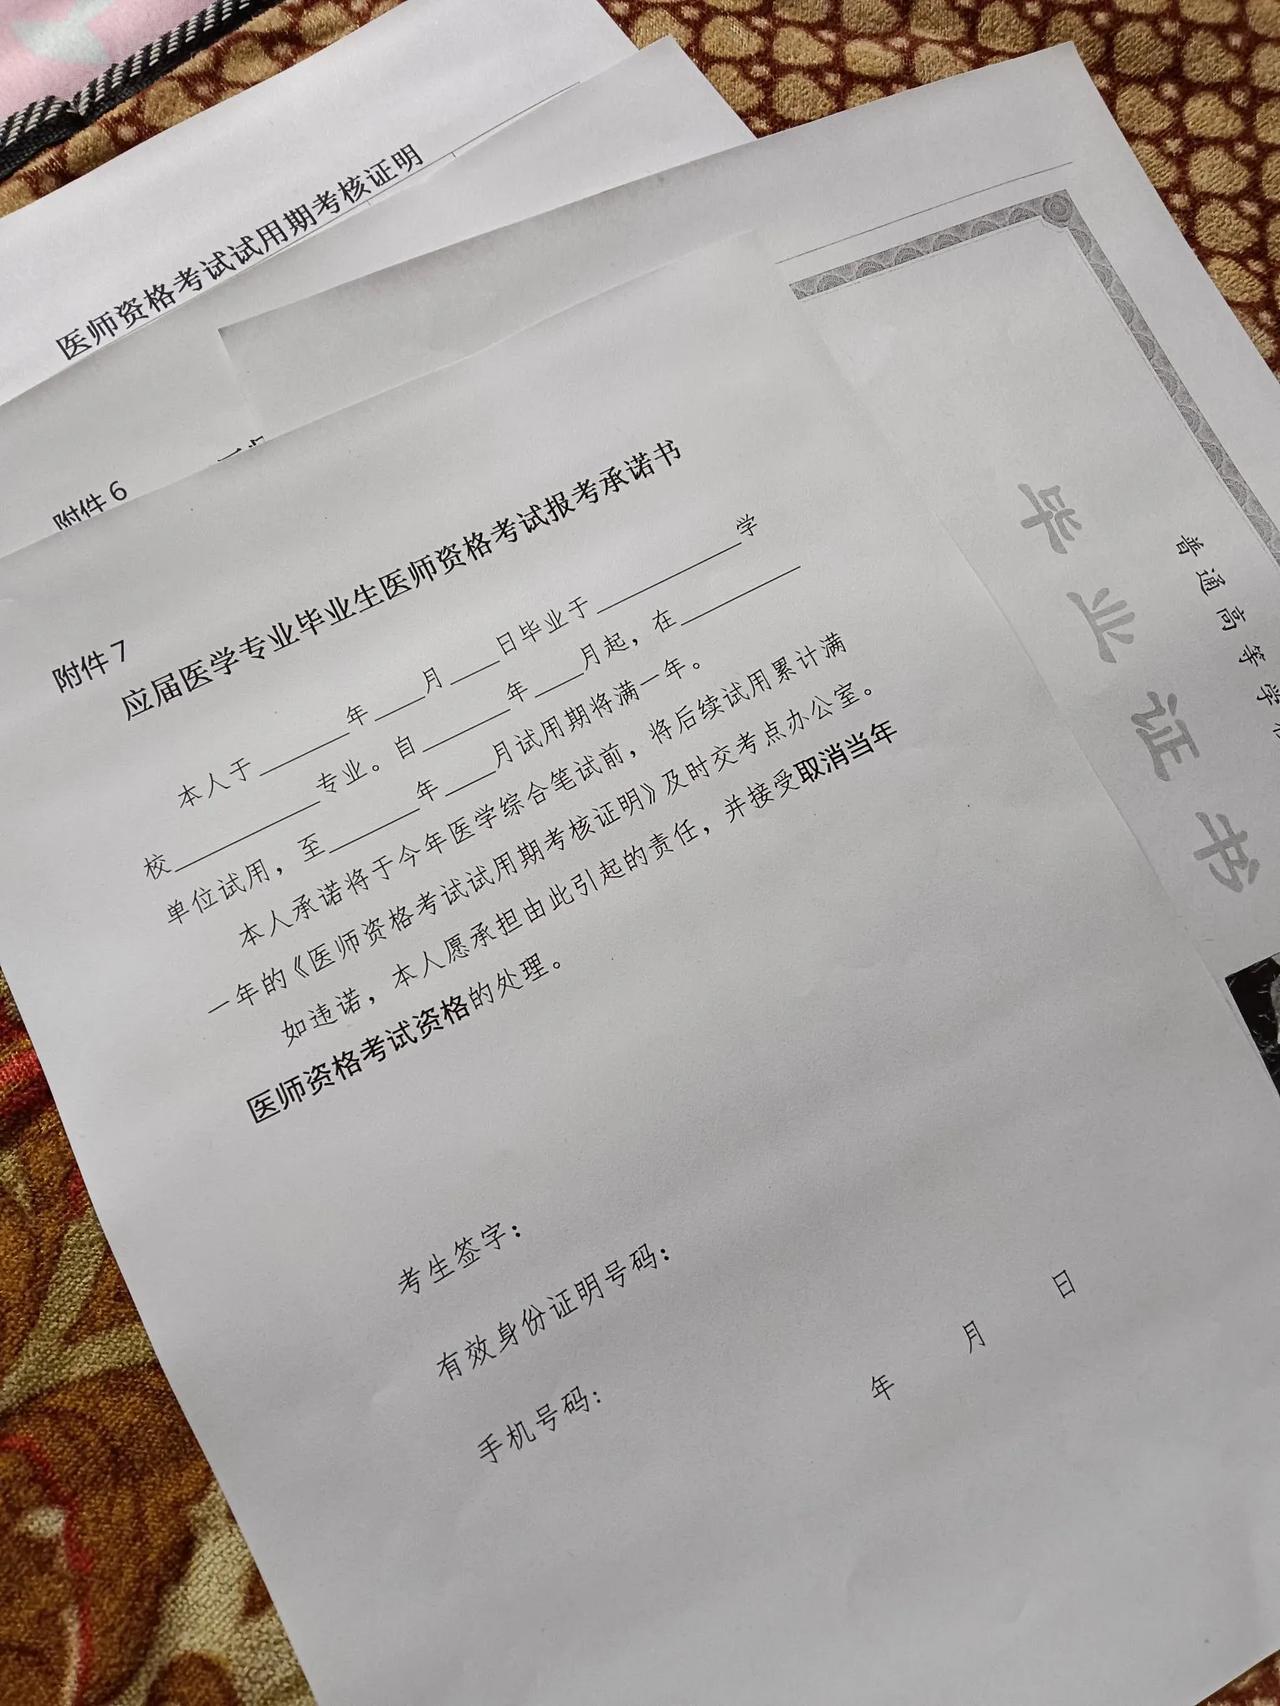 医师资格考试试用期考核证明
附件 6
毕业证书
普通高等学
附件 7
应届医学专业毕业生医师资格考试报考承诺书
本人于______年____月____日毕业于__________学
校__________专业。自______年____月起，在________
单位试用，至______年____月试用期将满一年。
本人承诺将于今年医学综合笔试前，将后续试用累计满
一年的《医师资格考试试用期考核证明》及时交考点办公室。
如违诺，本人愿承担由此引起的责任，并接受取消当年
医师资格考试资格的处理。
考生签字：
有效身份证明号码：
手机号码：
年 月 日